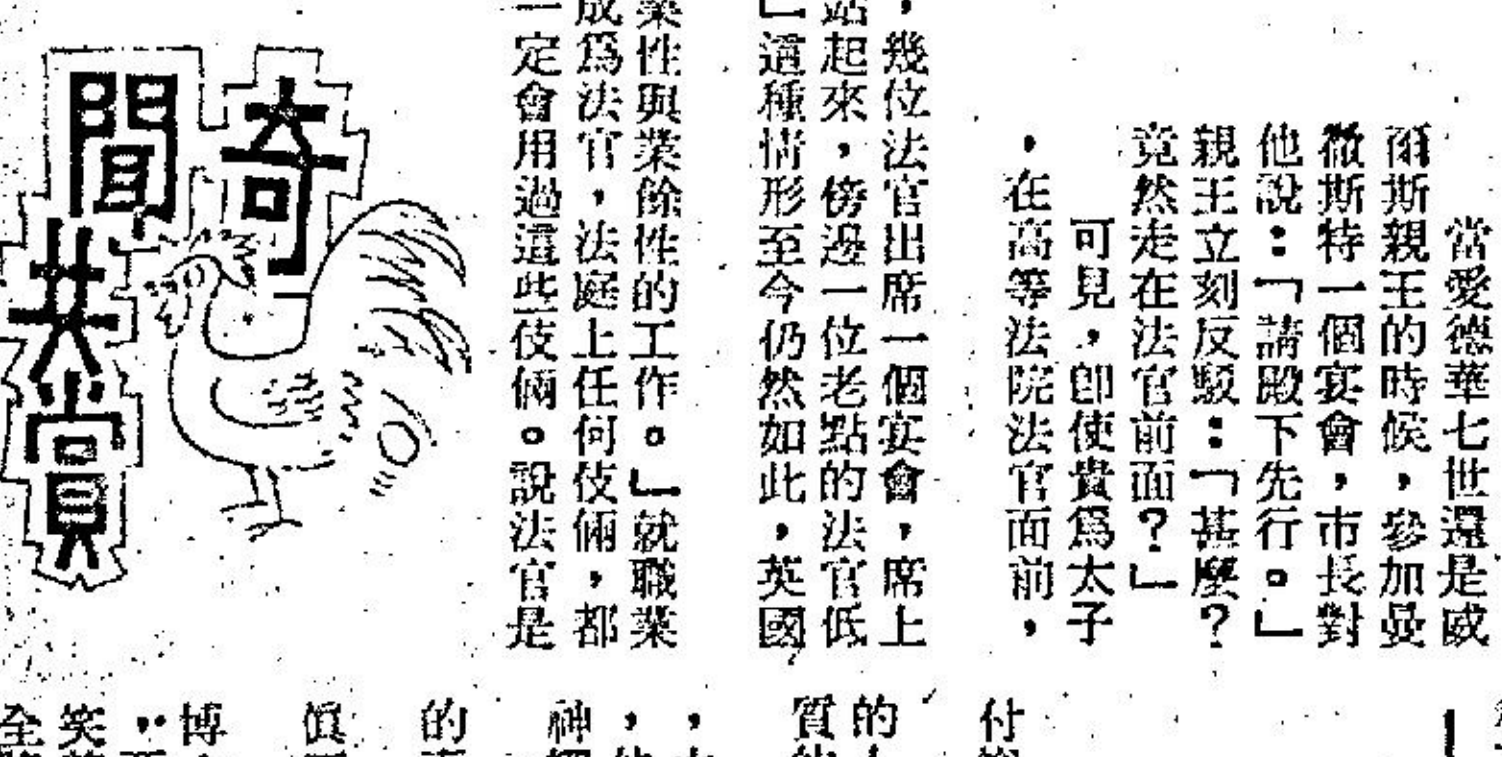 當愛德華七世還是威
爾斯親王的時候，參加曼
徹斯特一個宴會，市長對
他說：「請殿下先行。」
親王立刻反駁：「甚麼？
竟然走在法官前面？」
可見，即使貴爲太子
，在高等法院法官面前，
，幾位法官出席一個宴會，席上
站起來，傍邊一位老點的法官低
」這種情形至今仍然如此，英國
業性與業餘性的工作。」就職業
成爲法官，法庭上任何伎倆，都
一定會用過這些伎倆。說法官是
奇聞共賞
付
的
質
，
，
神
的
眞
博
笑
全